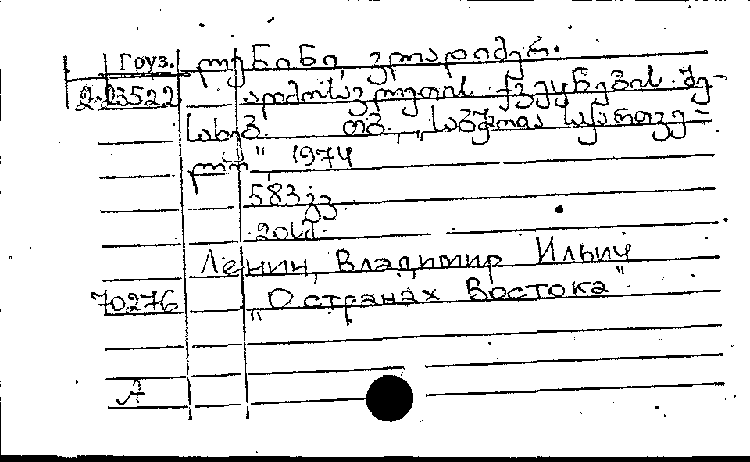 Груз. ლენინი, ვლადიმერ.
2-23522 აღმოსავლეთის ქვეყნების შე-
სახებ. თბ., „საბჭოთა საქართვე-
ლო", 1974
583 გვ.
Ленин, Владимир Ильич
70276 „О странах Востока"
A